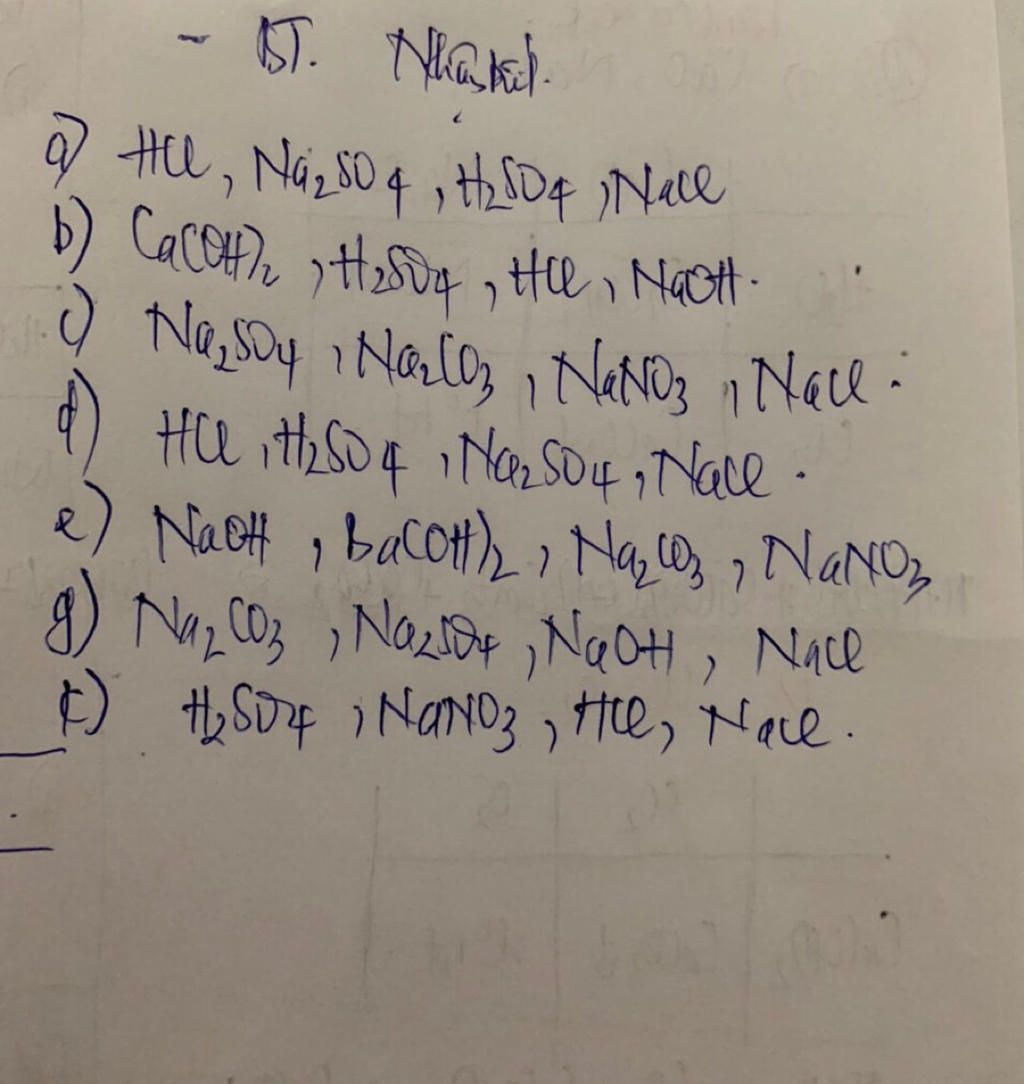 - BT. Nhận biết.
a) HCl, Na₂SO₄, H₂SO₄, NaCl
b) Ca(OH)₂, H₂SO₄, HCl, NaOH.
c) Na₂SO₄, Na₂CO₃, NaNO₃, NaCl.
d) HCl, H₂SO₄, Na₂SO₄, NaCl.
e) NaOH, Ba(OH)₂, Na₂CO₃, NaNO₃
g) Na₂CO₃, Na₂SO₄, NaOH, NaCl
k) H₂SO₄, NaNO₃, HCl, NaCl.